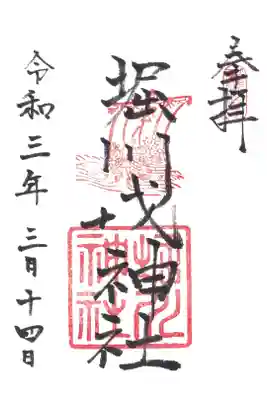 奉拝
堀川戎神社
令和三年 三月十四日
堀川
神社